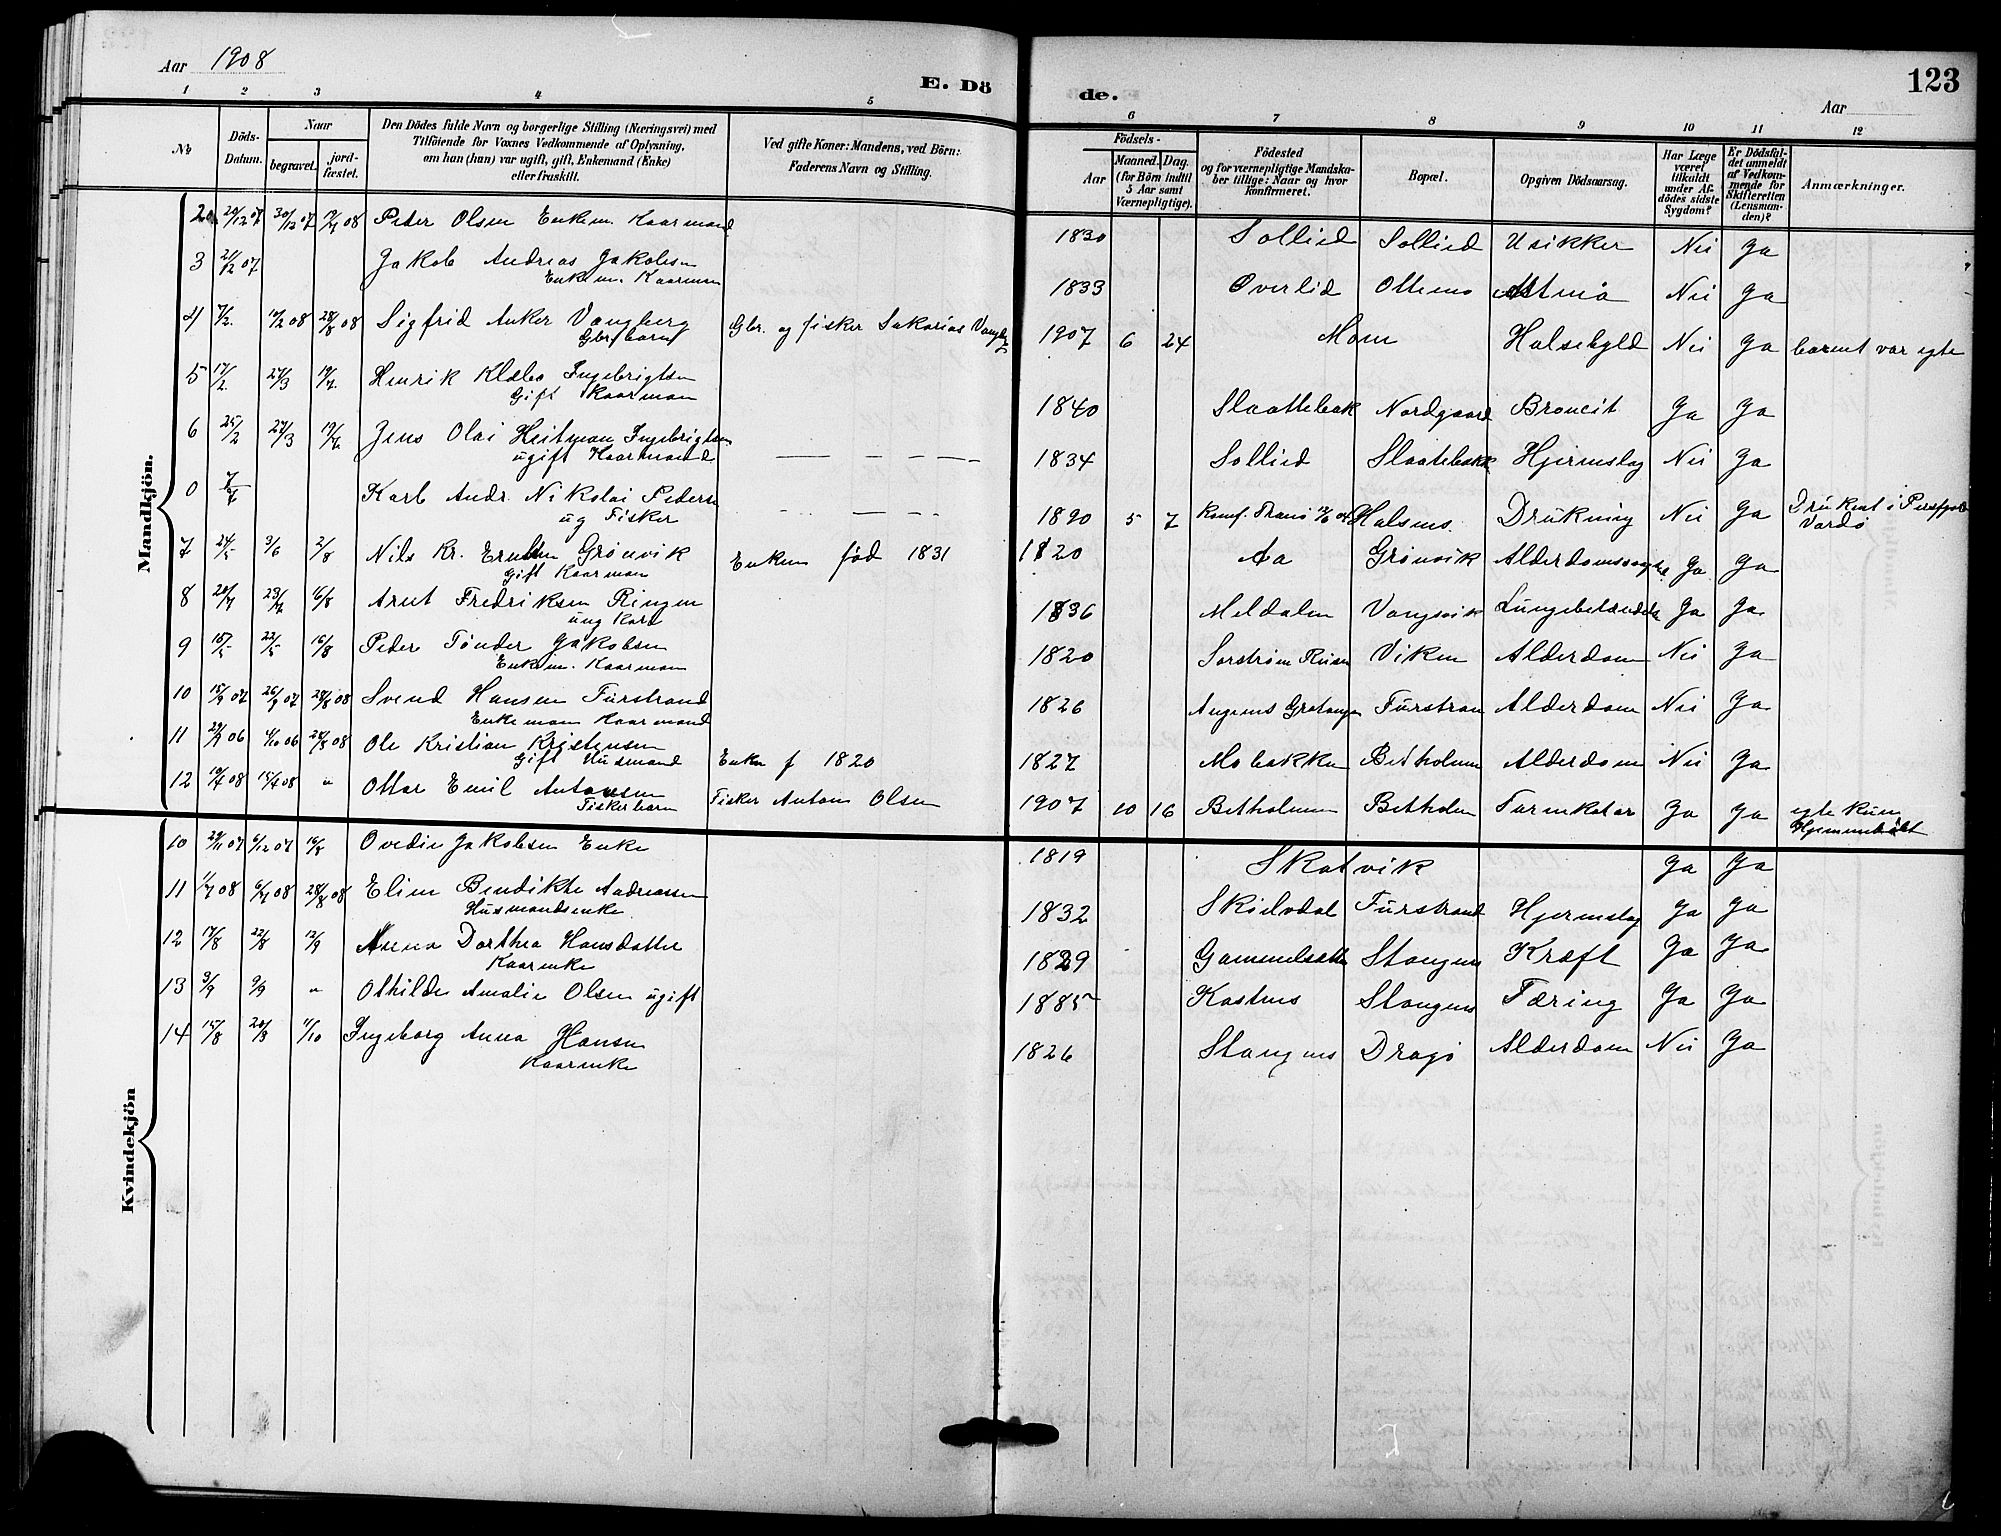 Aar 1908
E. Dö de.
123
Aar
1 2 3 4 5 6 7 8 9 10 11 12
No
Döds-Datum.
Naar
begravet.
jord-fæstet.
Den Dödes fulde Navn og borgerlige Stilling (Næringsvei) med
Tilföiende for Voxnes Vedkommende af Oplysning,
om han (hun) var ugift, gift, Enkemand (Enke)
eller fraskilt.
Ved gifte Koner: Mandens, ved Börn:
Faderens Navn og Stilling.
Födsels-
Aar
Maaned. Dag.
(for Börn indtil
5 Aar samt
Værnepligtige).
Födested
og for værnepligtige Mandska-
ber tillige: Naar og hvor
konfirmeret.
Bopæl.
Opgiven Dödsaarsag.
Har Læge
været
tilkaldt
under Af-
dödes sidste
Sygdom?
Er Dödsfal-
det anmeldt
af Vedkom-
mende for
Skifteretten
(Lensman-
den)?
Anmærkninger.
Mandkjön.
20/12 07 30/12 07 Peder Olsen Enkem. Kaarmand 1830 Sollied Sollied Usikker Nei Ja
3 21/12 07 Jakob Andreas Jakobsen 1833 Overlid Ottemo Astma Nei Ja
Enkem. Kaarman
4 7/2. 10/2 08 28/8 08 Sigfrid Anker Vangberg Gbr. og fisker Sakarias 1907 6 24 Moen Halsebyld Nei Ja barnet var egte
Gbr barn
5 17/2. 27/3 19/7. Henrik Klæbo Ingebrigtsen 1840 Slaattebak Nordgaard Broncit Ja Ja
Gift Kaarman
6 25/2 27/3 19/7. Jens Olai Heitman Ingebrigtsen — — — — 1834 Sollied Slaatebakk Hjerneslag Nei Ja
ugift Kaarmand
0 Karl Andr Nikolai Pedersen 1890 5 7 Konf. Tranö Halsnes. Drukning Nei Ja Druknet i
ug Fisker Vardø
7 24/5 3/6 2/8 Nils Kr. Grönvik Enken född 1831 1820 Aa Grönvik Ja Ja
Gift Kaarman
8 20/4 23/4 16/8 Arnt Fredriksen Ringen 1836 Meldalen Vangsvik Lungebetændelse Ja Ja
ung Karl
9 15/5 22/5 16/8 Peder Tönder Jakobsen 1820 Viken Alderdom Nei Ja
Enkem. Kaarman
10 15/9 07 26/9 07 28/8 08 Svend Hansen Furstrand 1826 Furstran Alderdom Nei Ja
Enkeman Kaarmand
11 29/9 06 4/10 06 28/8 08 Ole Kristian Kristensen Enken f 1820 1827 Mobakken Betholmen Alderdom Nei Ja
Gift Husmand
12 10/4 08 15/4 08 " Ottar Emil Antonsen Fisker Anton Olsen 1907 10 16 Betholmen Betholm Ja Ja egte kun
Fiskerbarn Hjemmedöbt
Kvindekjön
10 29/11 07 6/12 07 16/8 Ovedie Jakobsen Enke 1819 Skatvik Ja Ja
11 6/1 08 28/8 08 Eline Bendikte Andreassen 1832 Skoelvdal Furstrand Hjerneslag Ja Ja
Husmandsenke.
12 17/8 22/8 12/9 Anna Dorthea Hansdatter 1829 Stangnes Kræft Ja Ja
Kaarenke
13 3/9 9/9 " Othilde Amalie Olsen ugift 1885 Kastnes Stangnes Tæring Ja Ja
14 15/8 11/10 Ingeborg Anna Hansen 1826 Stangnes Dragö Alderdom Nei Ja
Kaarenke